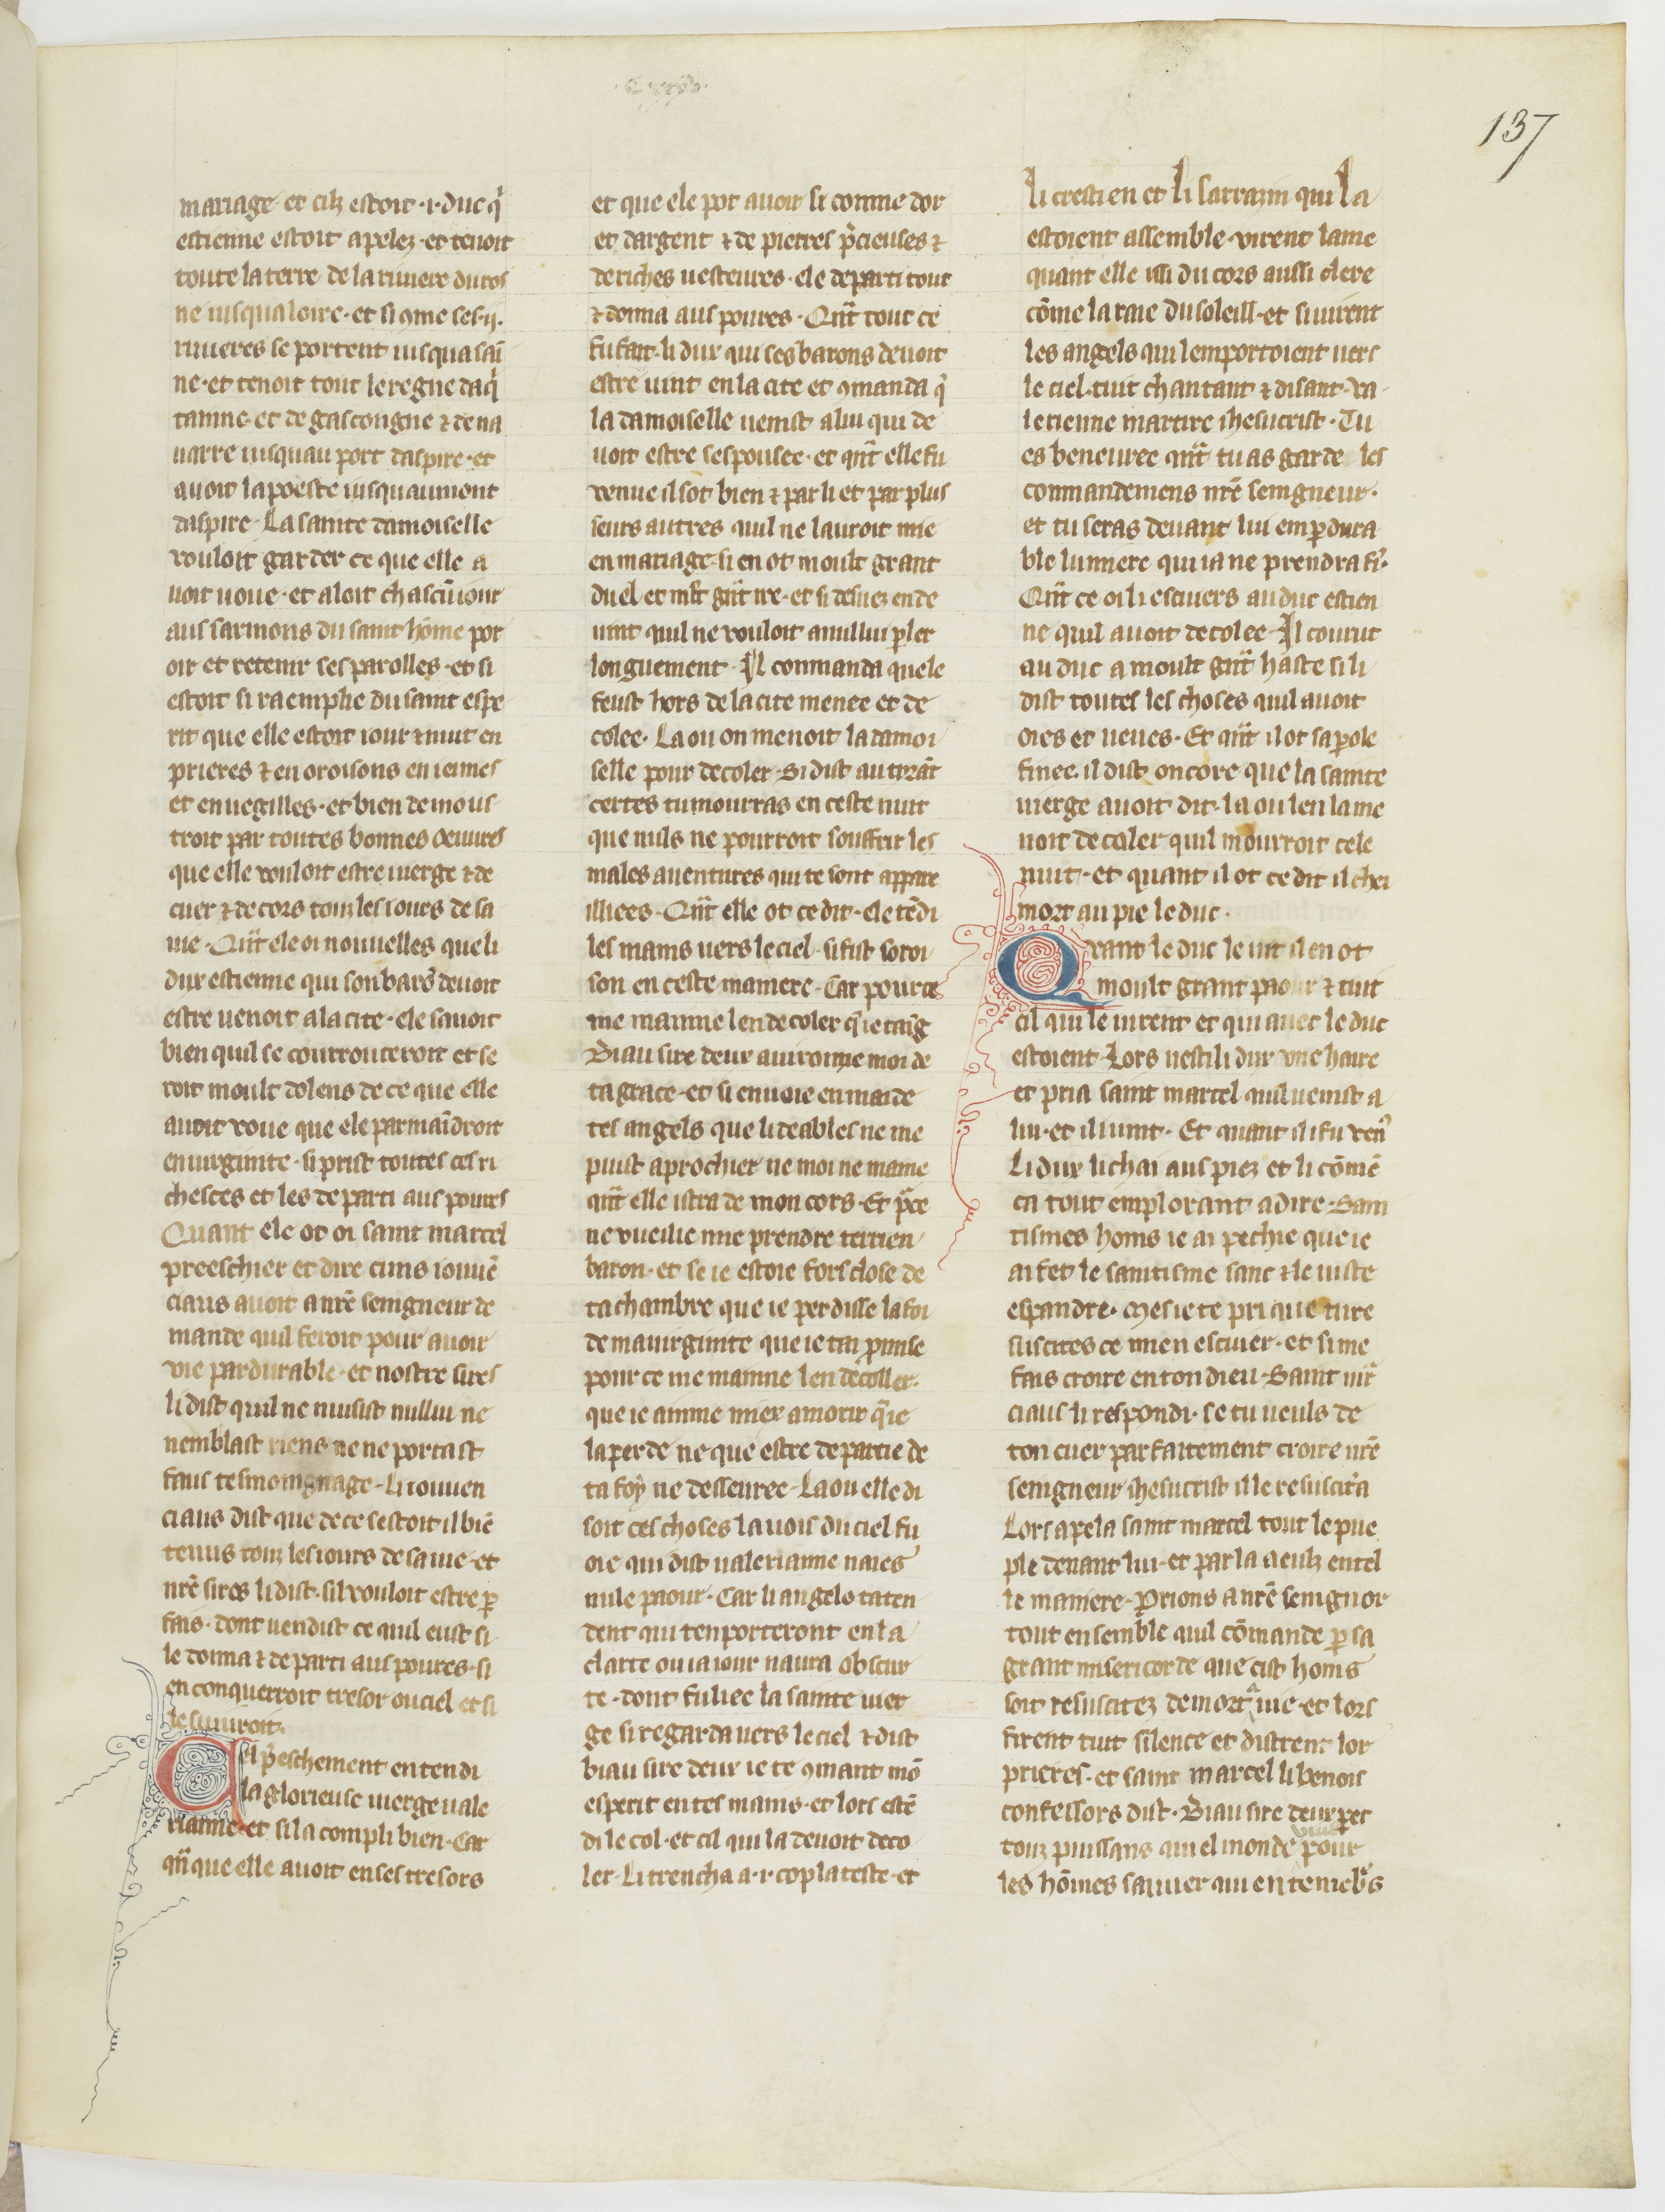 137
mariage et cilz estoit ·i· duc q̇
estienne estoit apelez · et tenoit
toute la terre de la riuiere du ros
ne iusqua loire · et si ꝯme ses ·ij·
riuieres se portent iusqua sai
ne · et tenoit tout le regne daq̇
tainne · et de gascongne ⁊ de na
uarre iusquau port daspire · et
auoit la poeste iusquaumont
daspire · La sainte damoiselle
vouloit garder ce que elle a
uoit uoue · et aloit chascū iour
aus sarmons du saint hōme por
oir et retenir ses parolles · et si
estoit si raemplie du saint espe
rit que elle estoit iour ⁊ nuit en
prieres ⁊ en oroisons en ieunes
et en uegilles · et bien demous
troit par toutes bonnes oeuures
que elle vouloit estre uierge ⁊ de
cuer ⁊ de cors touz les iours de sa
uie · Qñt ele oi nouuelles que li
dux estienne qui son bar̄s deuoit
estre uenoit a la cite · ele sauoit
bien quil se courrouceroit et se
roit moult dolens de ce que elle
auoit voue que ele parmaīdroit
en uirginite · si prist toutes ces ri
chesces et les departi aus poures
Quant ele ot oi saint marcel
preeschier et dire cuns iouuē
ciaus auoit a nrē seingneur de
mande quil feroit pour auoir
vie pardurable · et nostre sires
li dist quil ne nuisist nullui ne
nemblast riens ne ne portast
faus tesmoingnage · Li iouuen
ciaus dist que de ce sestoit il biē
tenus touz les iours de sa uie · et
nrē sires li dist · sil vouloit estre ꝑ
fais · dont uendist ce quil eust si
le donna ⁊ departi aus poures · si
en conquerroit tresor ou ciel et si
le suiuroit ·
Cel p̄eschement entendi
la glorieuse uierge uale
rianne · et si la compli bien · Car
qñ que elle auoit en ses tresors
et que ele pot auoir si comme dor
et dargent ⁊ de pierres p̄cieuses ⁊
de riches uesteures · ele departi tout
⁊ donna aus poures · Qñt tout ce
fu fait · li dux qui ses barons deuoit
estre uint en la cite et ꝯmanda q̇
la damoiselle uenist a lui qui de
uoit estre sespousee · et qñt elle fu
venue il sot bien ⁊ par li et par plus
seurs autres quil ne lauroit mie
en mariage · si en ot moult grant
duel · et mlt̄ gñt ire · et si desuez en de
uint quil ne vouloit a nullui ꝑler
longuement · Il conmanda quele
feust hors de la cite menee et de
colee · La ou on menoit la damoi
selle pour decoler · Si dist au tirāt
certes tu mourras en ceste nuit
que nuls ne pourroit souffrir les
males auentures qui te sont appare
illiees · Qñt elle ot ce dit · ele tēdi
les mains uers le ciel · si fist soroi
son en ceste maniere · Car pour ce
me mainne len decoler q̄ ie taig
Biau sire deux auironne moi de
ta grace · et si enuoie en maide
tes angels que li deables ne me
puist aprochier ne moi ne mame
qñt elle istra de mon cors · Et p̄ ce
ne vueille mie prendre terrien
baron · et se ie estoie forsclose de
ta chambre que ie perdisse la foi
de ma uirginite que ie tai ꝓmise
pour ce me mainne len decoller ·
que ie aimme miex a morir q̄ ie
la perde ne que estre departie de
ta foy ne desseuree · La ou elle di
soit ces choses la uois du ciel fu
oie qui dist ualerianne naies
nule paour · Car li angels taten
dent qui temporteront en la
clarte ou ia iour naura obscur
te · dont fu liee la sainte uier
ge si regarda uers le ciel ⁊ dist
biau sire deux ie te ꝯmant mō
esperit en tes mains · et lors estē
di le col · et cil qui la deuoit deco
ler · Li trencha a ·i· cop la teste · et
li crestien et li sarrazin qui la
estoient assemble · virent lame
quant elle issi du cors aussi clere
cōme la raie du soleill · et si uirent
les angels qui lemportoient uers
le ciel · tuit chantant ⁊ disant · va
lerienne martire ihesucrist · Tu
es beneuree qñt tu as garde les
conmandemens nrē seingneur ·
et tu seras deuant lui em ꝑdura
ble lumiere qui ia ne prendra fi ·
Qñt ce oi li escuiers au duc estien
ne quil auoit decolee · Il courut
au duc a moult gñt haste si li
dist toutes les choses quil auoit
oies et ueues · Et qñt il ot sa ꝑole
finee · il dist oncore que la sainte
uierge auoit dit · la ou len la me
noit decoler quil mourroit cele
nuit · et quant il ot ce dit il chei
mort au pie le duc ·
Quant le duc le uit il en ot
moult grant paour ⁊ tuit
cil qui le uirent et qui auec le duc
estoient · Lors uesti li dux vne haire
et pria saint marcel quil uenist a
lui · et il i uint · Et quant il i fu ven̉
Li dux li chai aus piez et li cōmē
ca tout emplorant a dire · Sain
tismes homs ie ai pechie que ie
ai fet le saintisme sanc ⁊ le iuste
espandre · Mes ie te pri que tu re
suscites ce mien escuier · et si me
fais croire en ton dieu · Saint mr̄
ciaus li respondi · se tu ueuls de
ton cuer parfaitement croire nrē
seingneur ihesucrist il le resuscit̉a
Lors apela saint marcel tout le pue
ple deuant lui · et parla a eulz en tel
le maniere · Prions a nrē seingnor
tout ensemble quil cōmande ꝑ sa
grant misericorde que cist homs
soit resuscitez de mort a uie · et lors
firent tuit silence et distrent lor
prieres · et saint marcel li benois
confessors dist · Biau sire deux per
touz puissans qui el monde pour
les hōmes sauuer qui en teniebr̄s